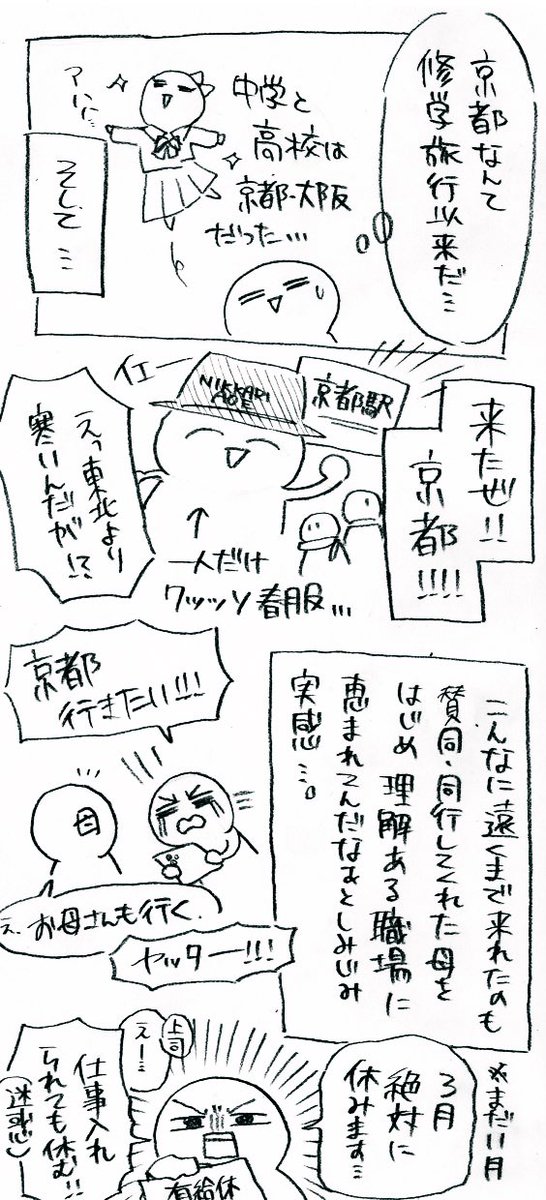 京都なんて
修学旅行以来だ…
中学と
高校は
京都・大阪
だった…
そして…
来たぜ!!
京都!!!!
京都駅
NIKKARI
AOE
イエー
えっ東北より
寒いんだが!?
一人だけ
ワッッツ春服…
こんなに遠くまで来れたのも
賛同・同行してくれた母を
はじめ理解ある職場に
恵まれてんだなぁとしみじみ
実感…。
京都
行きたい!!!
母
え、お母さんも行く。
ヤッター!!!
※まだ11月
3月
絶対に
休みます…
上司
えー…
仕事入れ
られても休む!!
(迷惑)
有給休